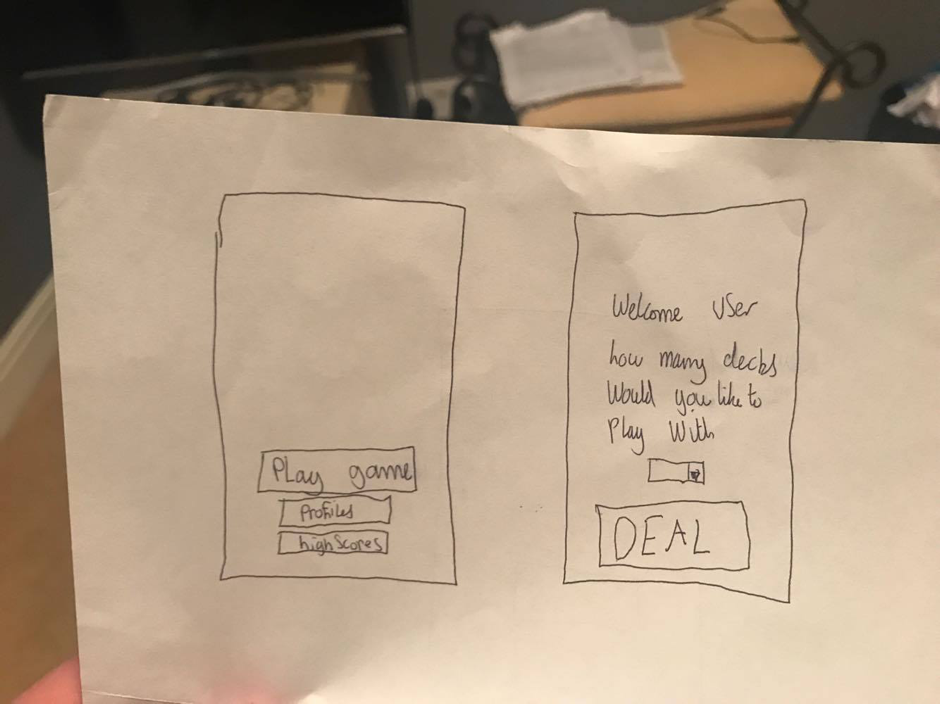 PLay game
Profiles
highScores
Welcome USer
how many decks
Would you like to
Play With
DEAL